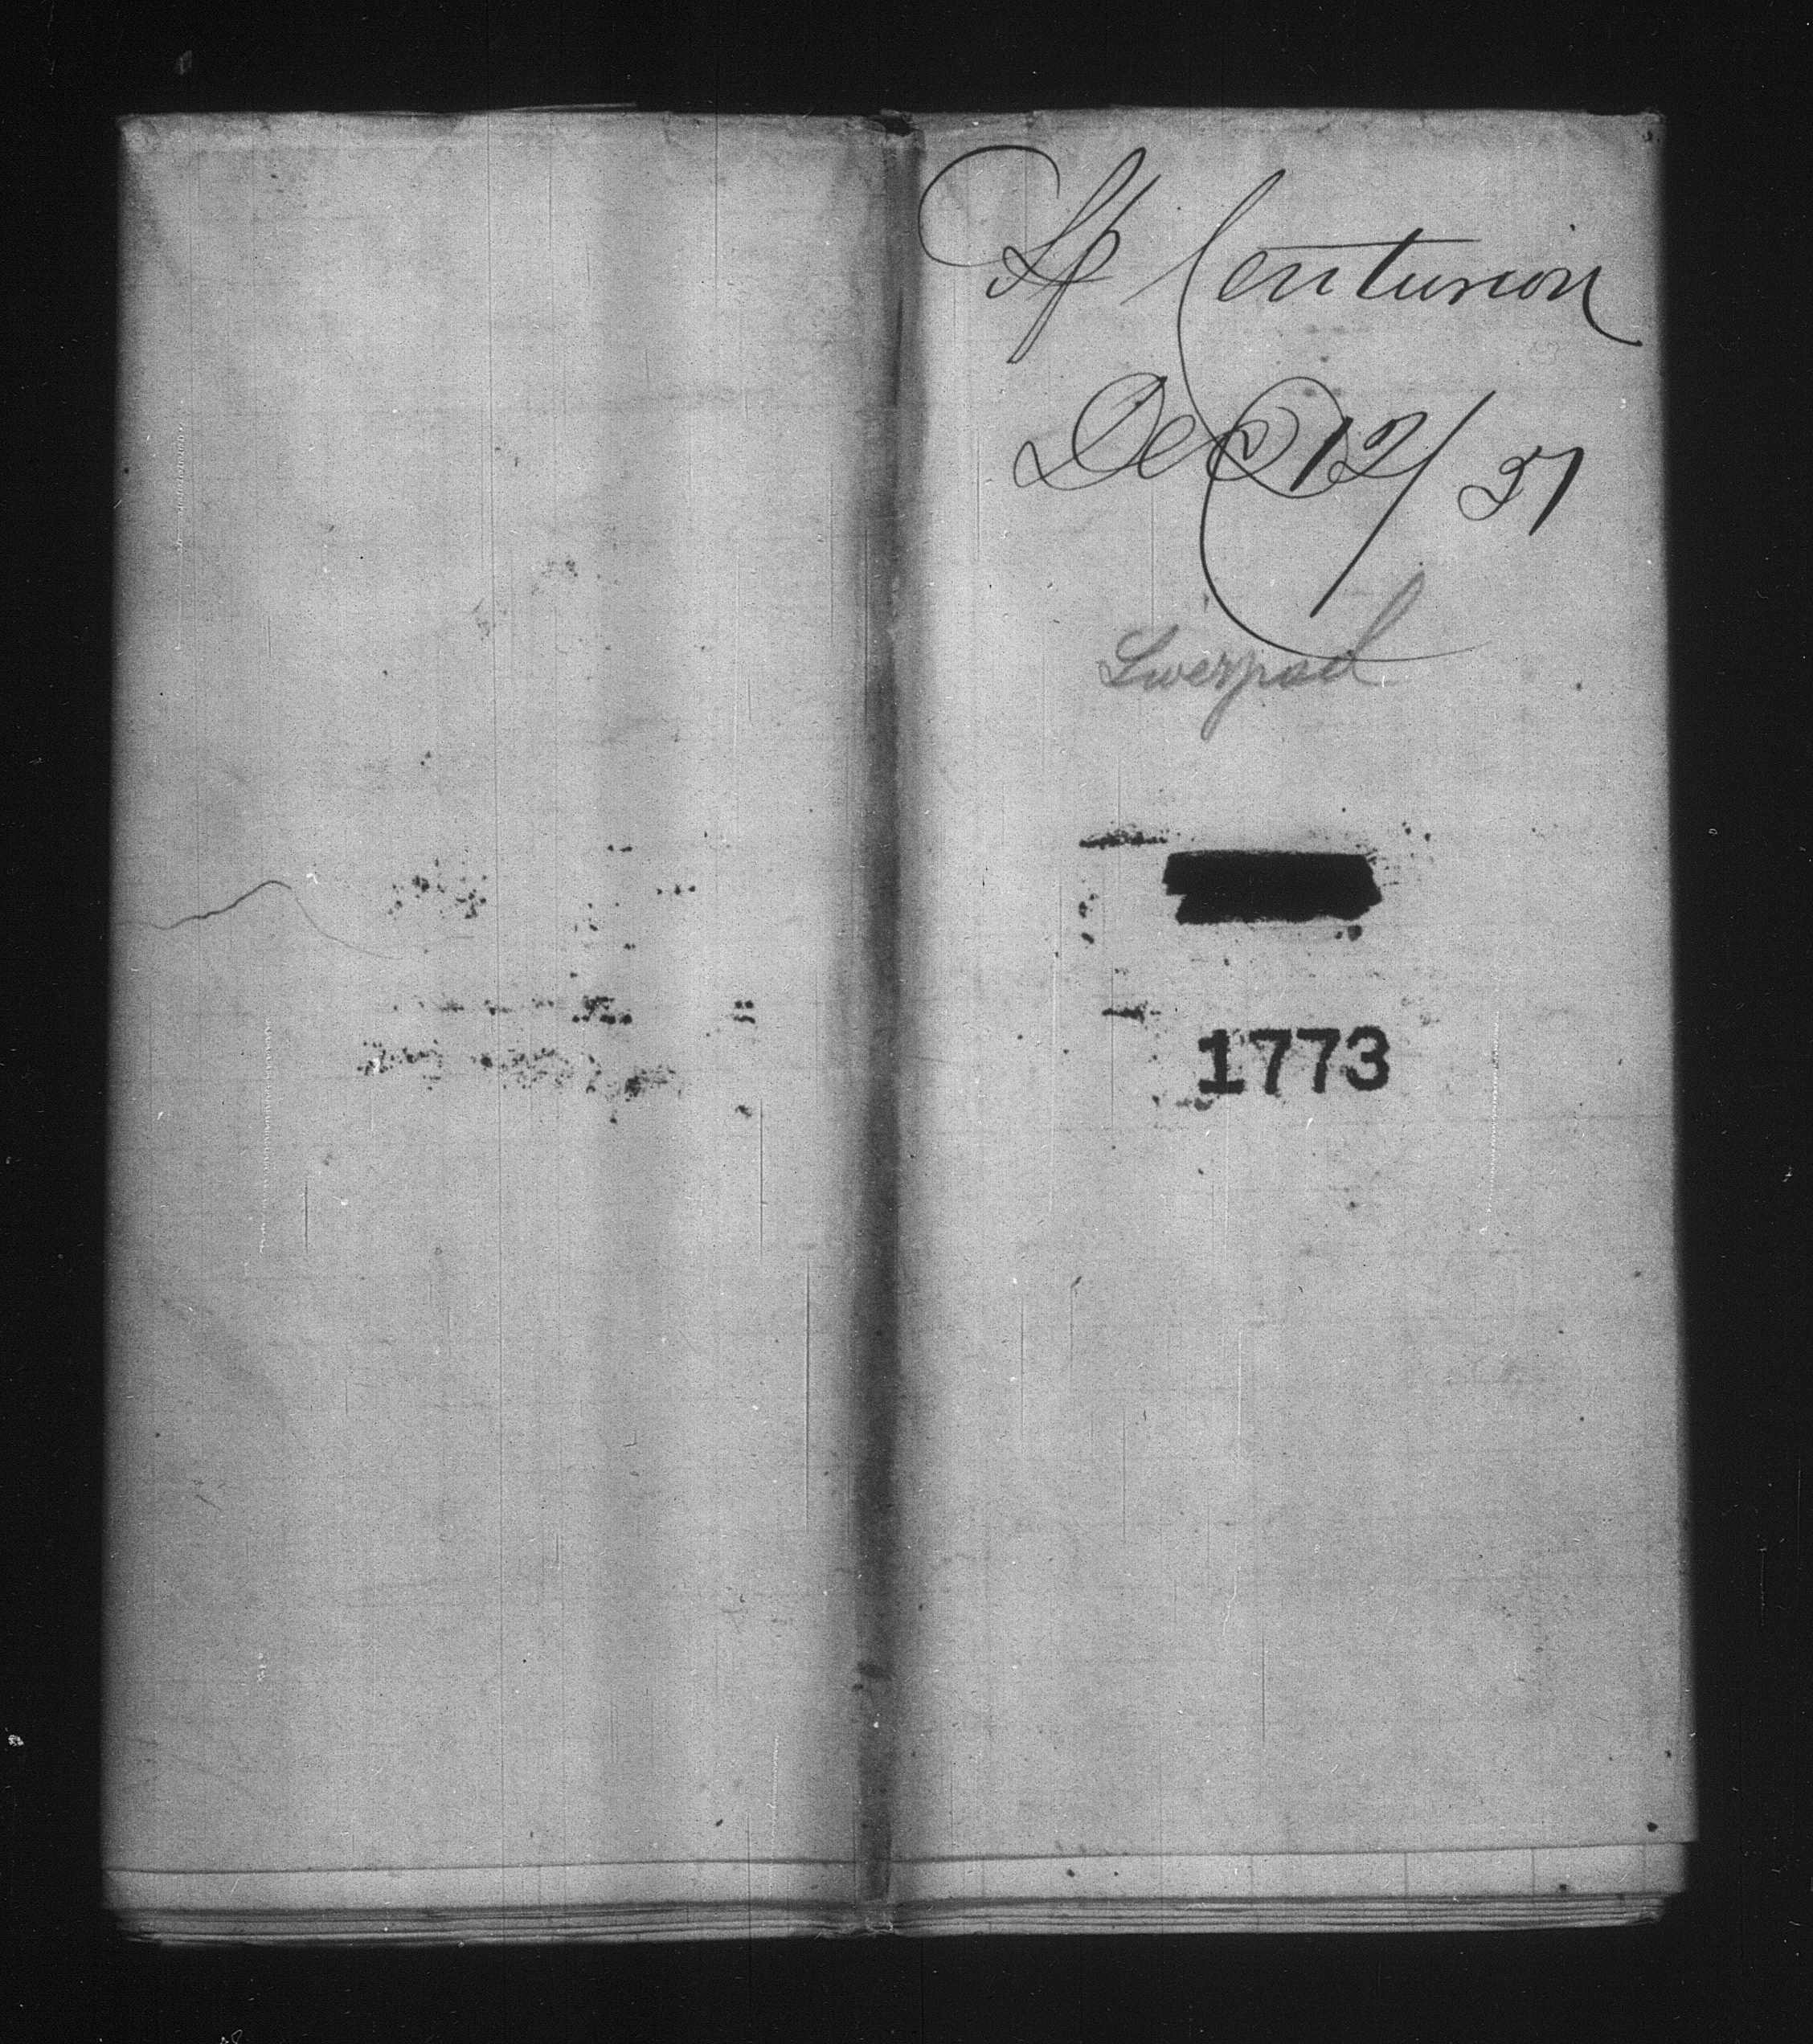 Sp Centurion
Dec 12/51
Liverpool
1773